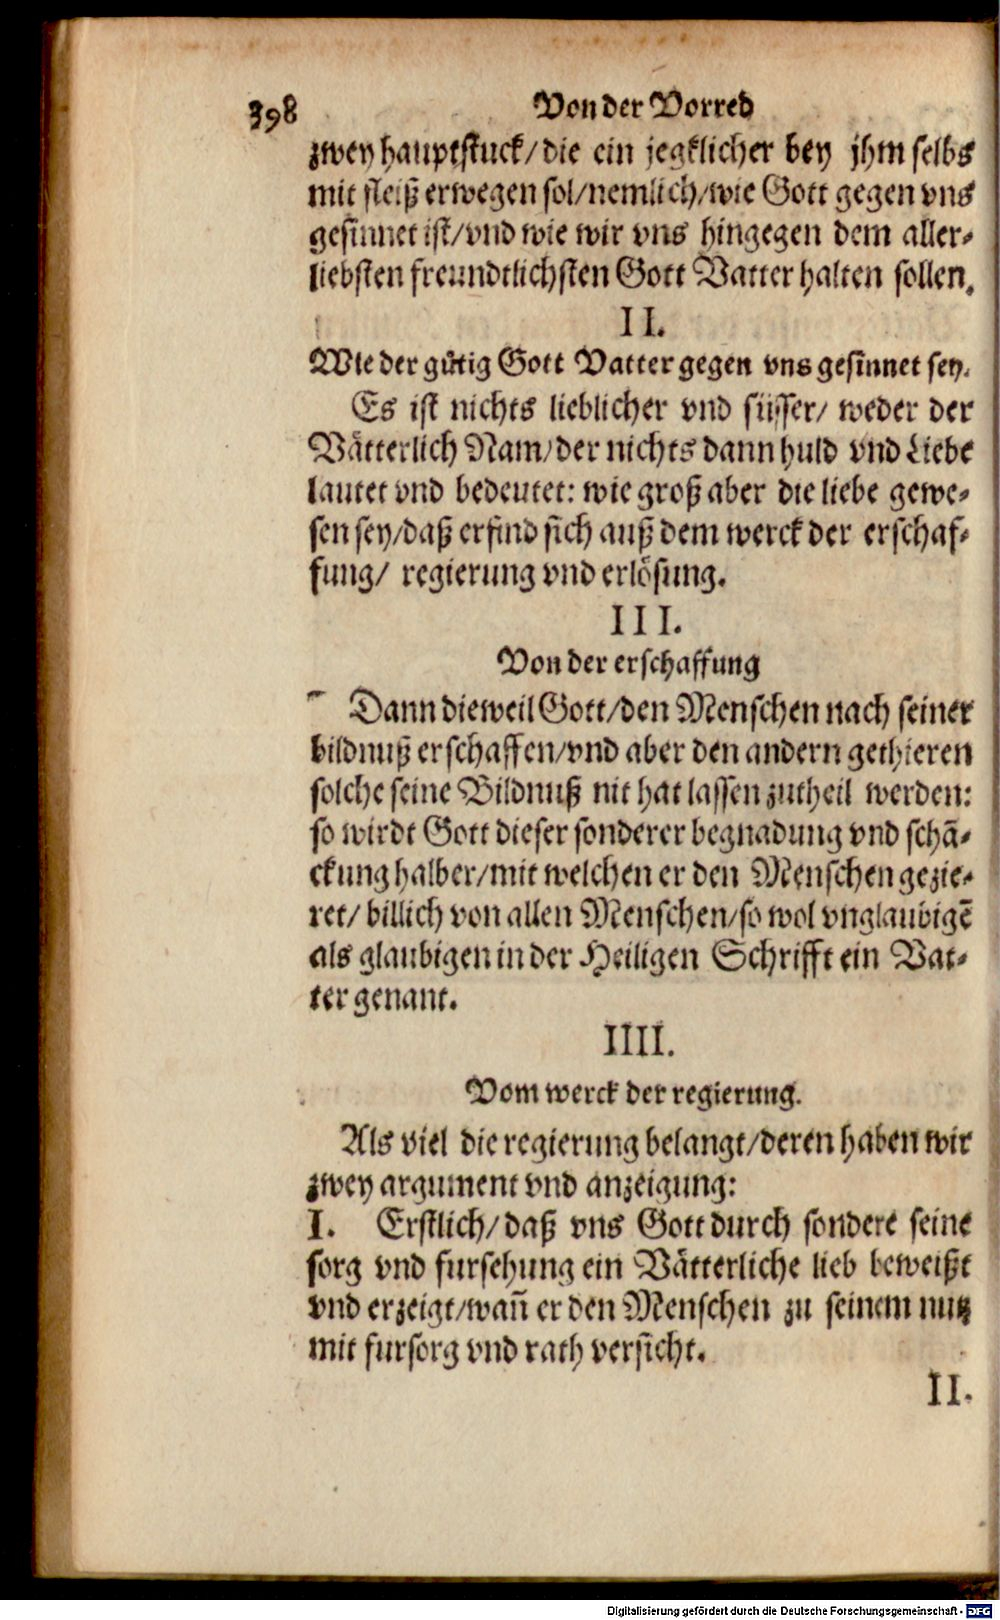 398 Von der Vorred
zwey hauptstuck/die ein jegklicher bey jhm selbs
mit fleiß erwegen sol/nemlich/wie Gott gegen vns
gesinnet ist/vnd wie wir vns hingegen dem aller-
liebsten freundtlichsten Gott Vatter halten sollen.
II.
Wie der gůtig Gott Vatter gegen vns gesinnet sey.
Es ist nichts lieblicher vnd süsser/ weder der
Vätterlich Nam/der nichts dann huld vnd Liebe
lautet vnd bedeutet: wie groß aber die liebe gewe-
sen sey/daß erfind sich auß dem werck der erschaf-
fung/ regierung vnd erlösung.
III.
Von der erschaffung
Dann dieweil Gott/den Menschen nach seiner
bildnuß erschaffen/vnd aber den andern gethieren
solche seine Bildnuß nit hat lassen zutheil werden:
so wirdt Gott dieser sonderer begnadung vnd schā-
ckung halber/mit welchen er den Menschen gezie-
ret/ billich von allen Menschen/so wol vnglaubigē
als glaubigen in der Heiligen Schrifft ein Vat-
ter genant.
IIII.
Vom werck der regierung.
Als viel die regierung belangt/deren haben wir
zwey argument vnd anzeigung:
I. Erstlich/daß vns Gott durch sondere seine
sorg vnd fursehung ein Vätterliche lieb beweißt
vnd erzeigt/wañ er den Menschen zu seinem nutz
mit fursorg vnd rath versicht.
II.
Digitalisierung gefördert durch die Deutsche Forschungsgemeinschaft - DFG